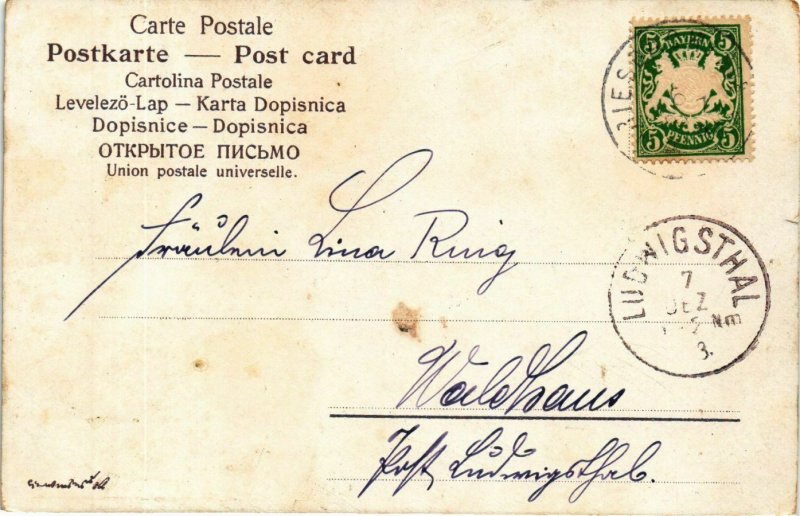 Carte Postale
Postkarte — Post card
Cartolina Postale
Levelező-Lap — Karta Dopisnica
Dopisnice — Dopisnica
ОТКРЫТОЕ ПИСЬМО
Union postale universelle.
5 BAYERN 5
5 PFENNIG 5
LUDWIGSTHAL
7
DEZ
Nm
3.
Fräulein Lina
Waldhaus
Post Ludwigsthal.